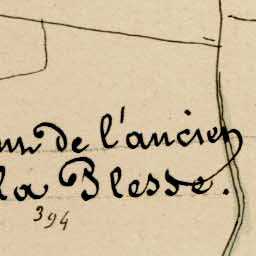 de l'ancien
la Blesse.
394